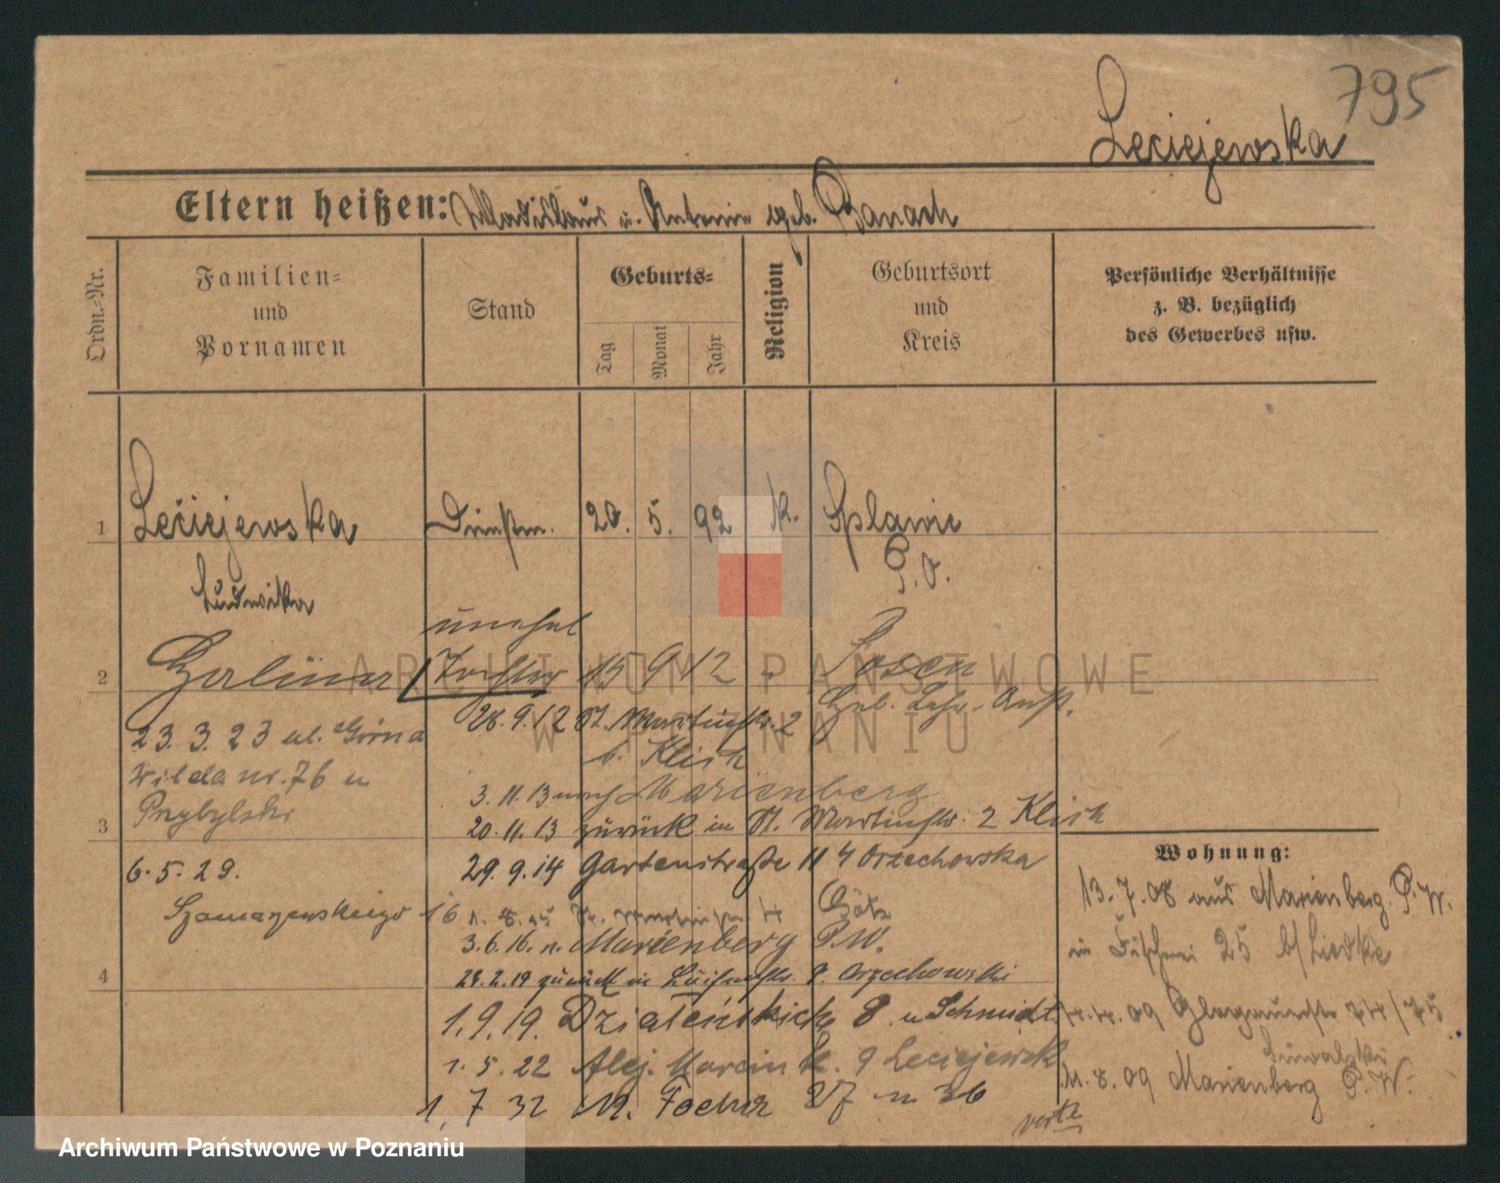 795
Leciejewska
Eltern heißen: Wladislaus u. Antonie geb. Banach
Ordn.-Nr.
Familien-
und
Vornamen
Stand
Geburts-
Tag
Monat
Jahr
Religion
Geburtsort
und
Kreis
Persönliche Verhältnisse
z. B. bezüglich
des Gewerbes usw.
1 Leciejewska Dienstm. 20. 5. 92 k. Splawie
P. O.
Ludwika
unehel
2 Tochter 15 9 12 Posen
28.9.12 St. Martinstr. 2 Heb. Lehr-Anst.
b. Klich
23. 3. 23 ul. Górna
Wilda nr. 76 u
3.11.13 nach Marienberg
3 20.11.13 zurück in St. Martinstr. 2 Klich
29.9.14 Gartenstraße 11 Orzechowska
6. 5. 29.
16
3.6.16. n. Marienberg P.W.
4 zurück in Luisenstr. Orzechowski
1.9.19. 8 u Schmidt
1. 5. 22 Alej. Marcin k. 9 Leciejewsk
1. 7 32 M. Focha 27 m 36
Wohnung:
13.7.08 aus Marienberg P.W.
in 25 b/Liedke
4.4.09 74/75
11.8.09 Marienberg P.W.
verte
ARCHIWUM PAŃSTWOWE
W POZNANIU
Archiwum Państwowe w Poznaniu